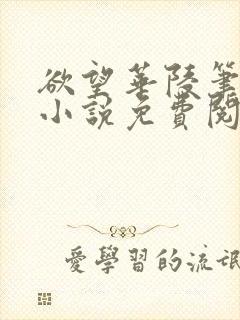 欲望華陵筆
小說免費閱
愛學習的流氓